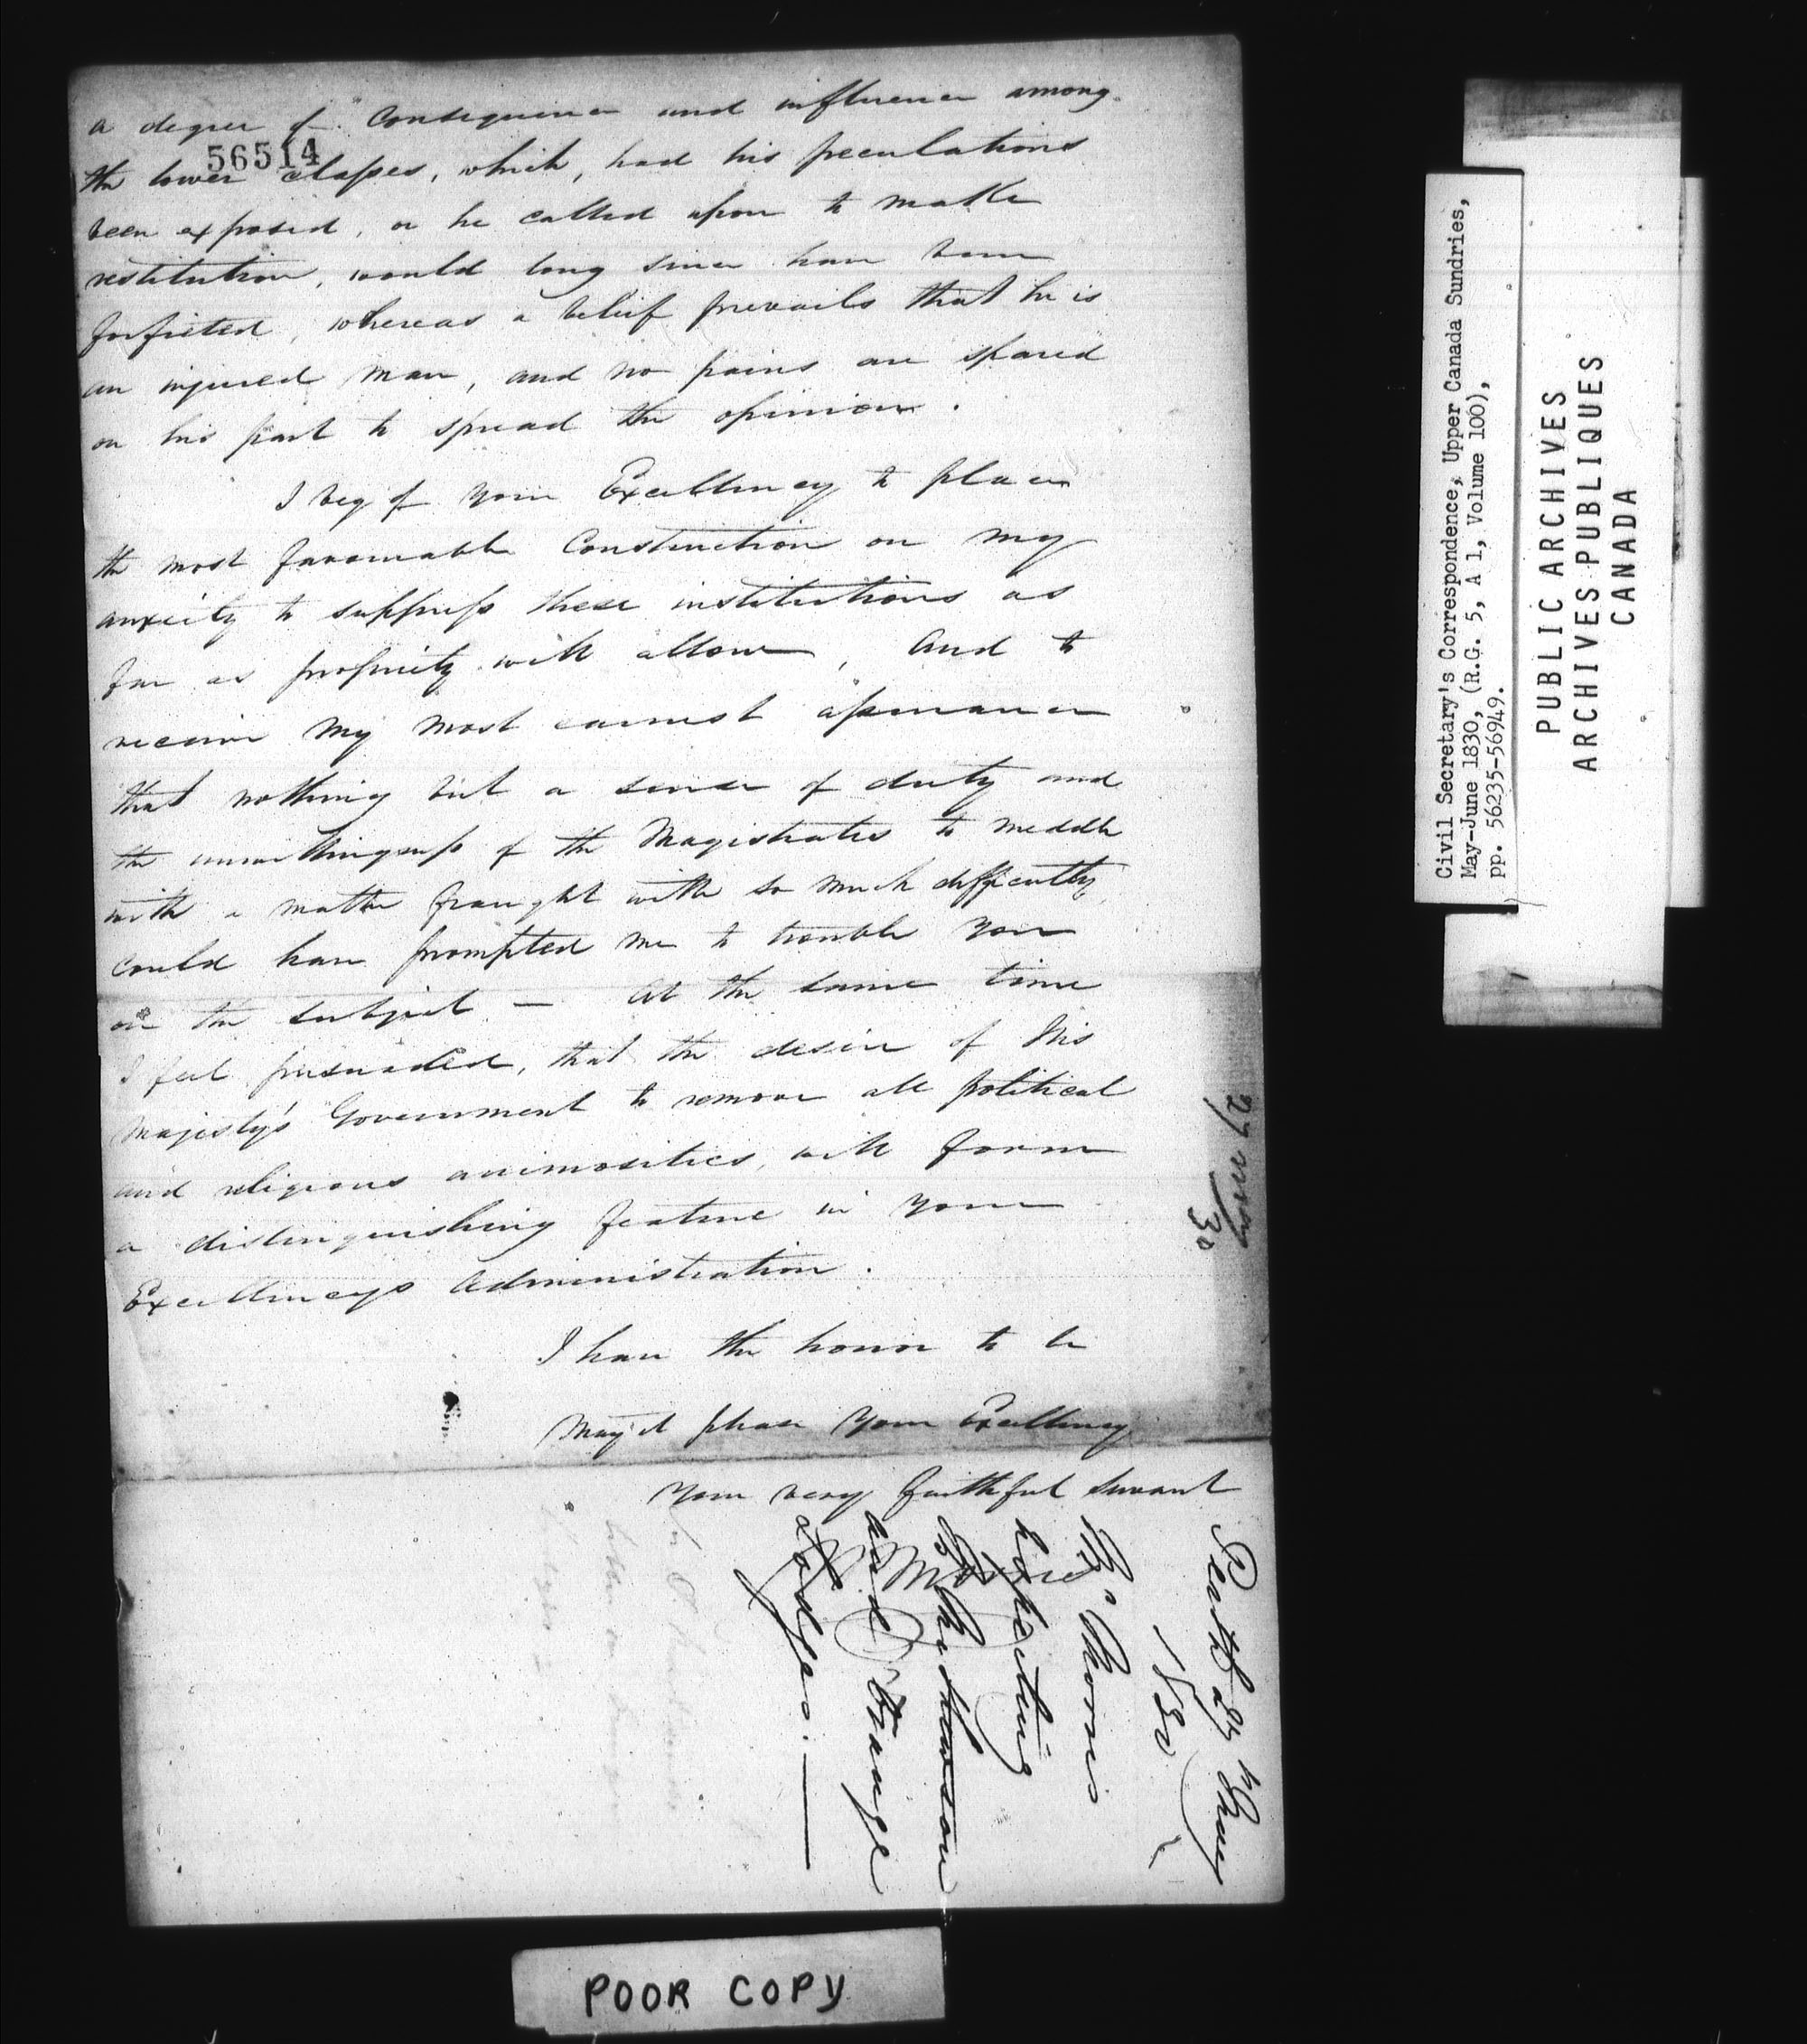 a degree of consequence and influence among
56514
the lower classes, which, had his peculations
been exposed, or he called upon to make
restitution, would long since have been
forfieted, whereas a belief prevails that he is
an injured man, and no pains are spared
on his part to spread the opinion.
I beg of your Excellency to place
the most favourable Construction on my
anxeity to suppress these institutions as
far as propriety will allow, and to
receive my most earnest assurance
that nothing but a sense of duty and
the unwillingness of the Magistrates to meddle
with a matter fraught with so much difficulty,
could have prompted me to trouble you
on the subject — At the same time
I feel persuaded, that the desire of His
Majesty's Government to remove all political
and religious animosities, will form
a distinguishing feature in your
Excellencys Administration.
I have the honor to be
May it please Your Excellency
Your very faithful servant
W Morris
27 May
30
Perth 27 May
1830
Wm Morris
respecting
and Orange
Lodges. —
Civil Secretary's Correspondence, Upper Canada Sundries,
May-June 1830, (R.G. 5, A 1, Volume 100),
pp. 56235-56949.
PUBLIC ARCHIVES
ARCHIVES PUBLIQUES
CANADA
POOR COPY